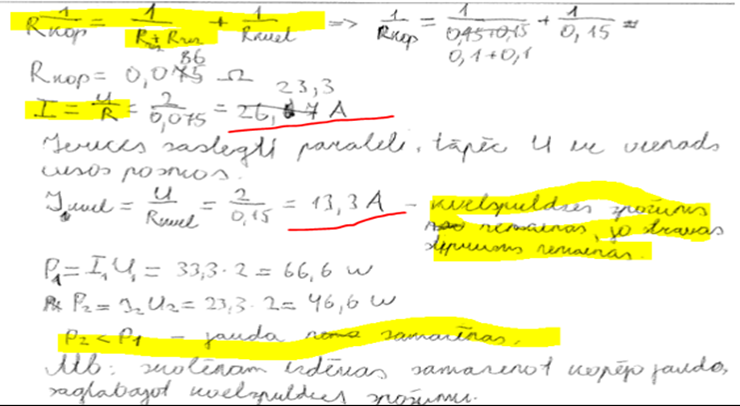 1/Rkop = 1/(Rr1+Rrez) + 1/Rkvel => 1/Rkop = 1/(0,1+0,1) + 1/0,15 =
Rkop = 0,086 Ω
I = U/R = 2/0,075 = 23,3 A
Ierīces saslēgti paralēli, tāpēc U ir vienāds
visos posmos.
Ikvel = U/Rkvel = 2/0,15 = 13,3 A – kvēlspuldzes spožums
nemainās, jo strāvas
stiprums nemainās.
P1 = I1U1 = 33,3 · 2 = 66,6 W
P2 = I2U2 = 23,3 · 2 = 46,6 W
P2 < P1 – jauda samazinās.
Atb: skolēnam izdevās samazināt kopējo jaudu,
saglabājot kvēlspuldzes spožumu.